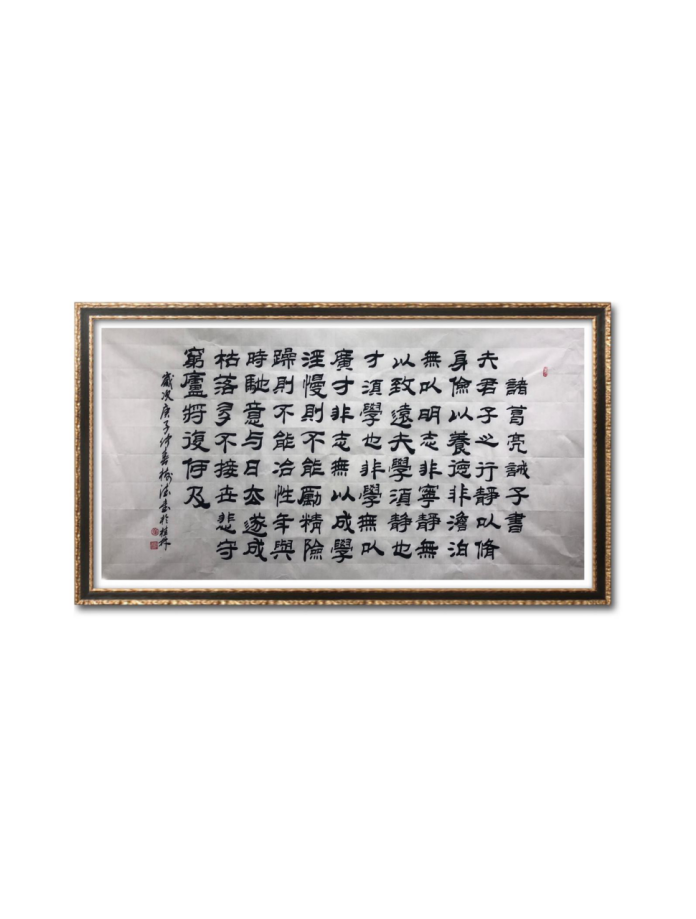 諸葛亮誡子書
夫君子之行静以脩
身儉以養德非澹泊
無以明志非寧静無
以致遠夫學須静也
才須學也非學無以
廣才非志無以成學
淫慢則不能勵精險
躁則不能冶性年與
時馳意与日去遂成
枯落多不接世悲守
窮廬將復何及
歲次庚子仲春